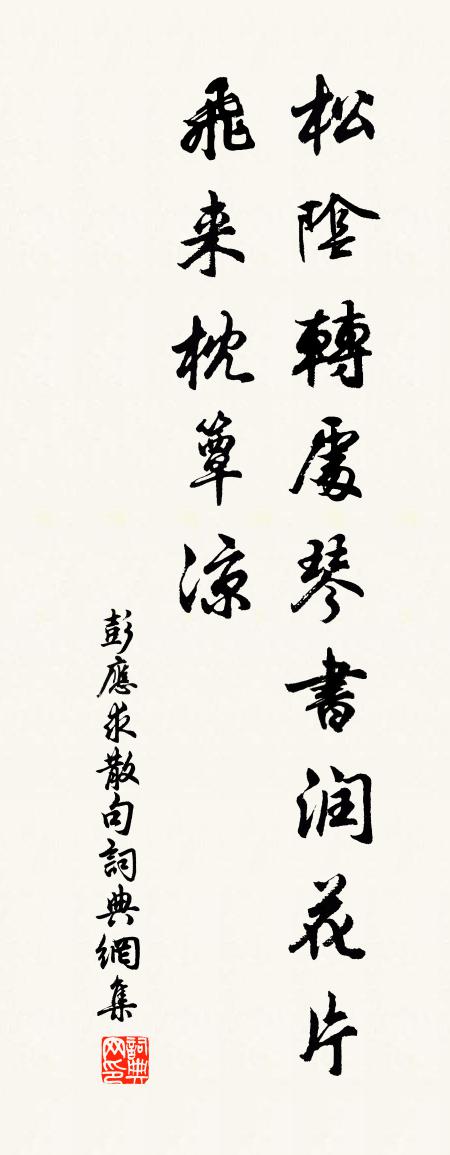 松陰轉處琴書润花片
飛来枕簟凉
彭應求散句詞典網集
詞典网印